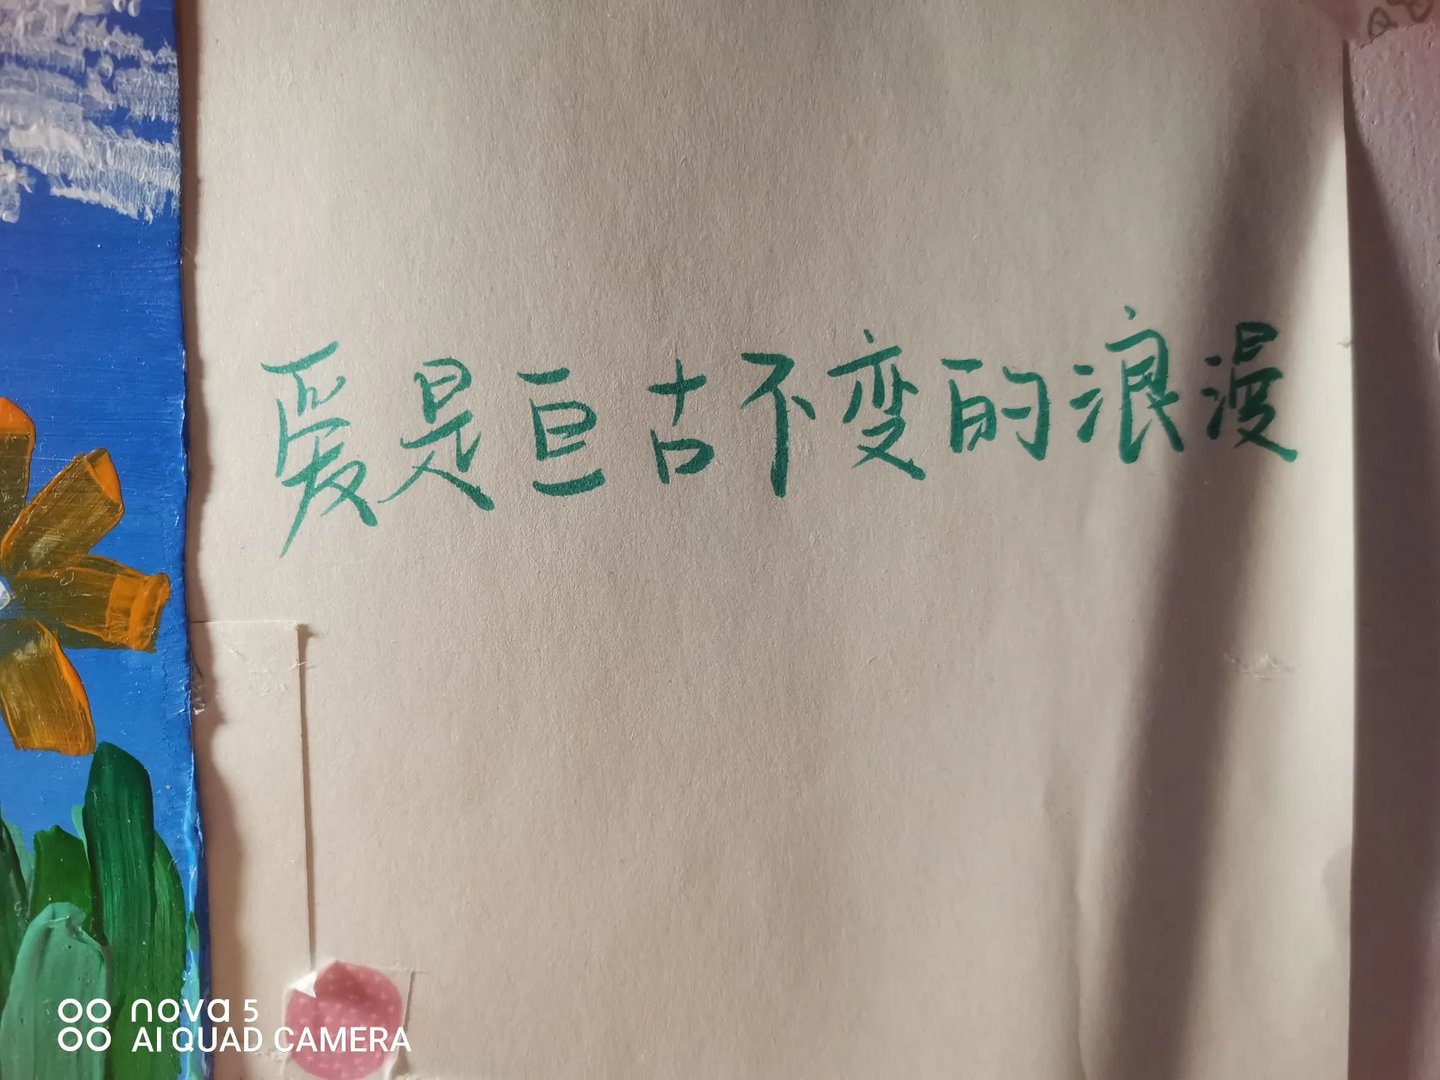 爱是亘古不变的浪漫
nova 5
AI QUAD CAMERA